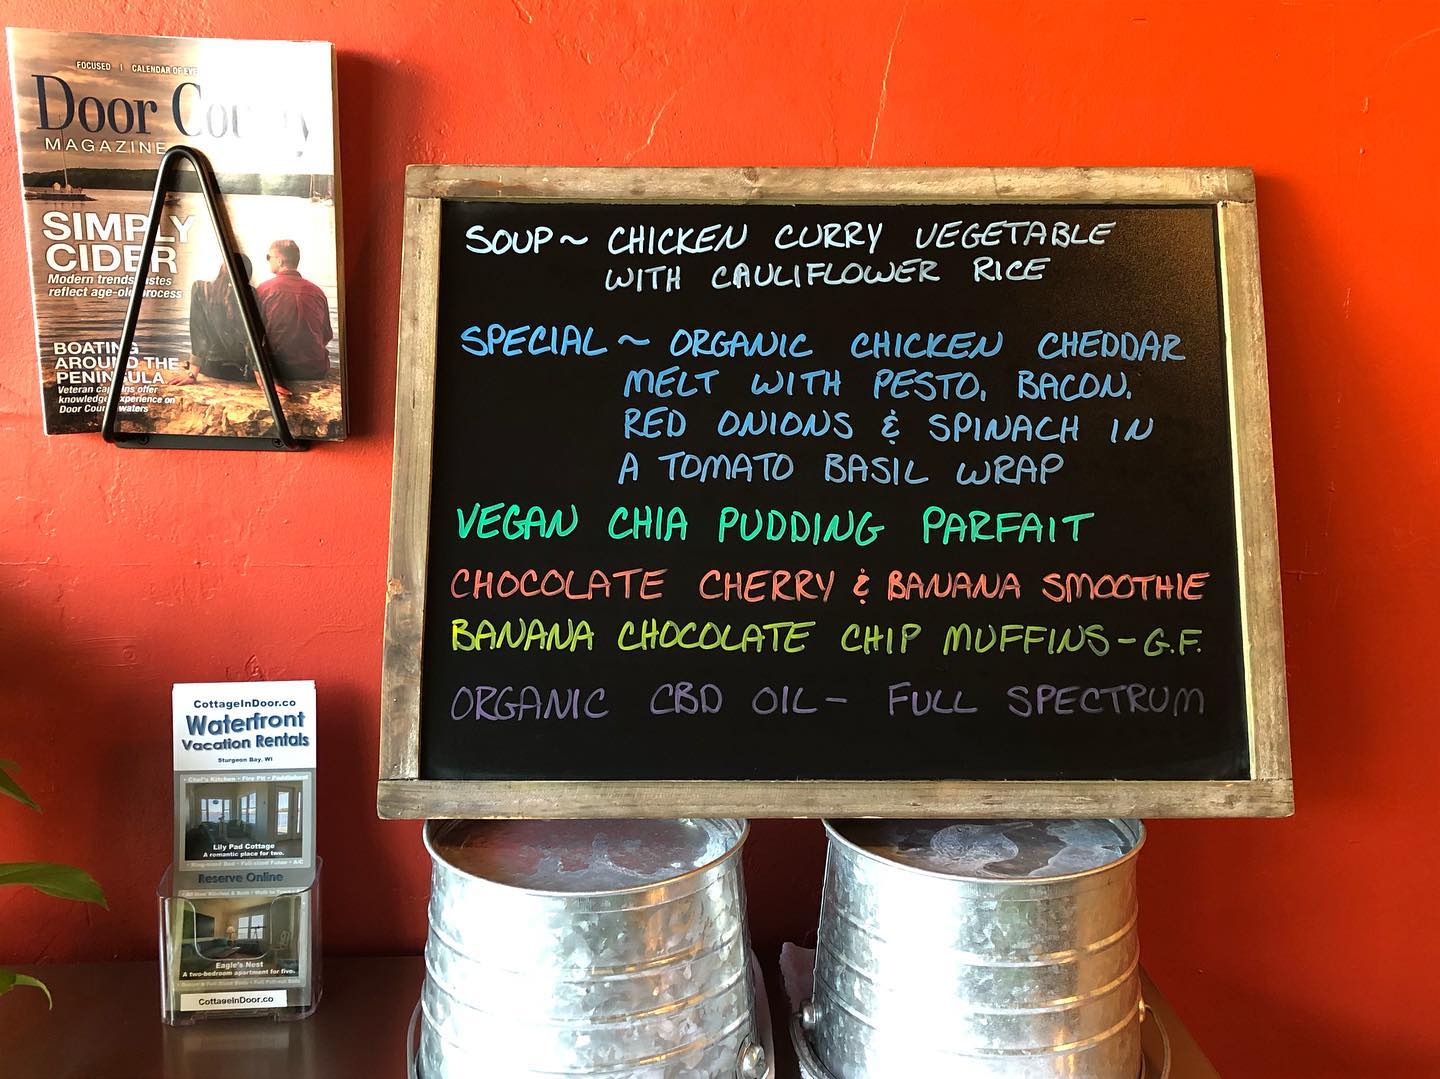 FOCUSED | CALENDAR OF
Door County
MAGAZINE
SIMPLY
CIDER
Modern trends, tastes
reflect age-old process
BOATING
AROUND THE
PENINSULA
Veteran captains offer
knowledge, experience on
Door County waters
SOUP~ CHICKEN CURRY VEGETABLE
WITH CAULIFLOWER RICE
SPECIAL ~ ORGANIC CHICKEN CHEDDAR
MELT WITH PESTO, BACON,
RED ONIONS & SPINACH IN
A TOMATO BASIL WRAP
VEGAN CHIA PUDDING PARFAIT
CHOCOLATE CHERRY & BANANA SMOOTHIE
BANANA CHOCOLATE CHIP MUFFINS-G.F.
ORGANIC CBD OIL- FULL SPECTRUM
CottageInDoor.co
Waterfront
Vacation Rentals
Sturgeon Bay, WI
Chef's Kitchen • Fire Pit • Paddleboat
Lily Pad Cottage
A romantic place for two.
Reserve Online
Eagle's Nest
A two-bedroom apartment for five.
CottageInDoor.co